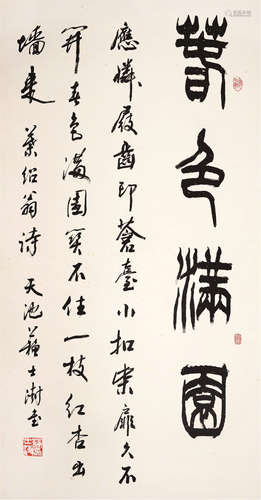 春色滿園
應憐屐齒印蒼臺小扣柴扉久不
開春色滿園關不住一枝紅杏出
墻來 葉紹翁詩 天池蘇士澍書